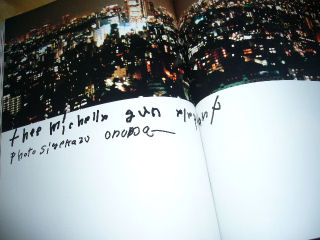 thee michelle gun elephant
photo sigekazu onuma